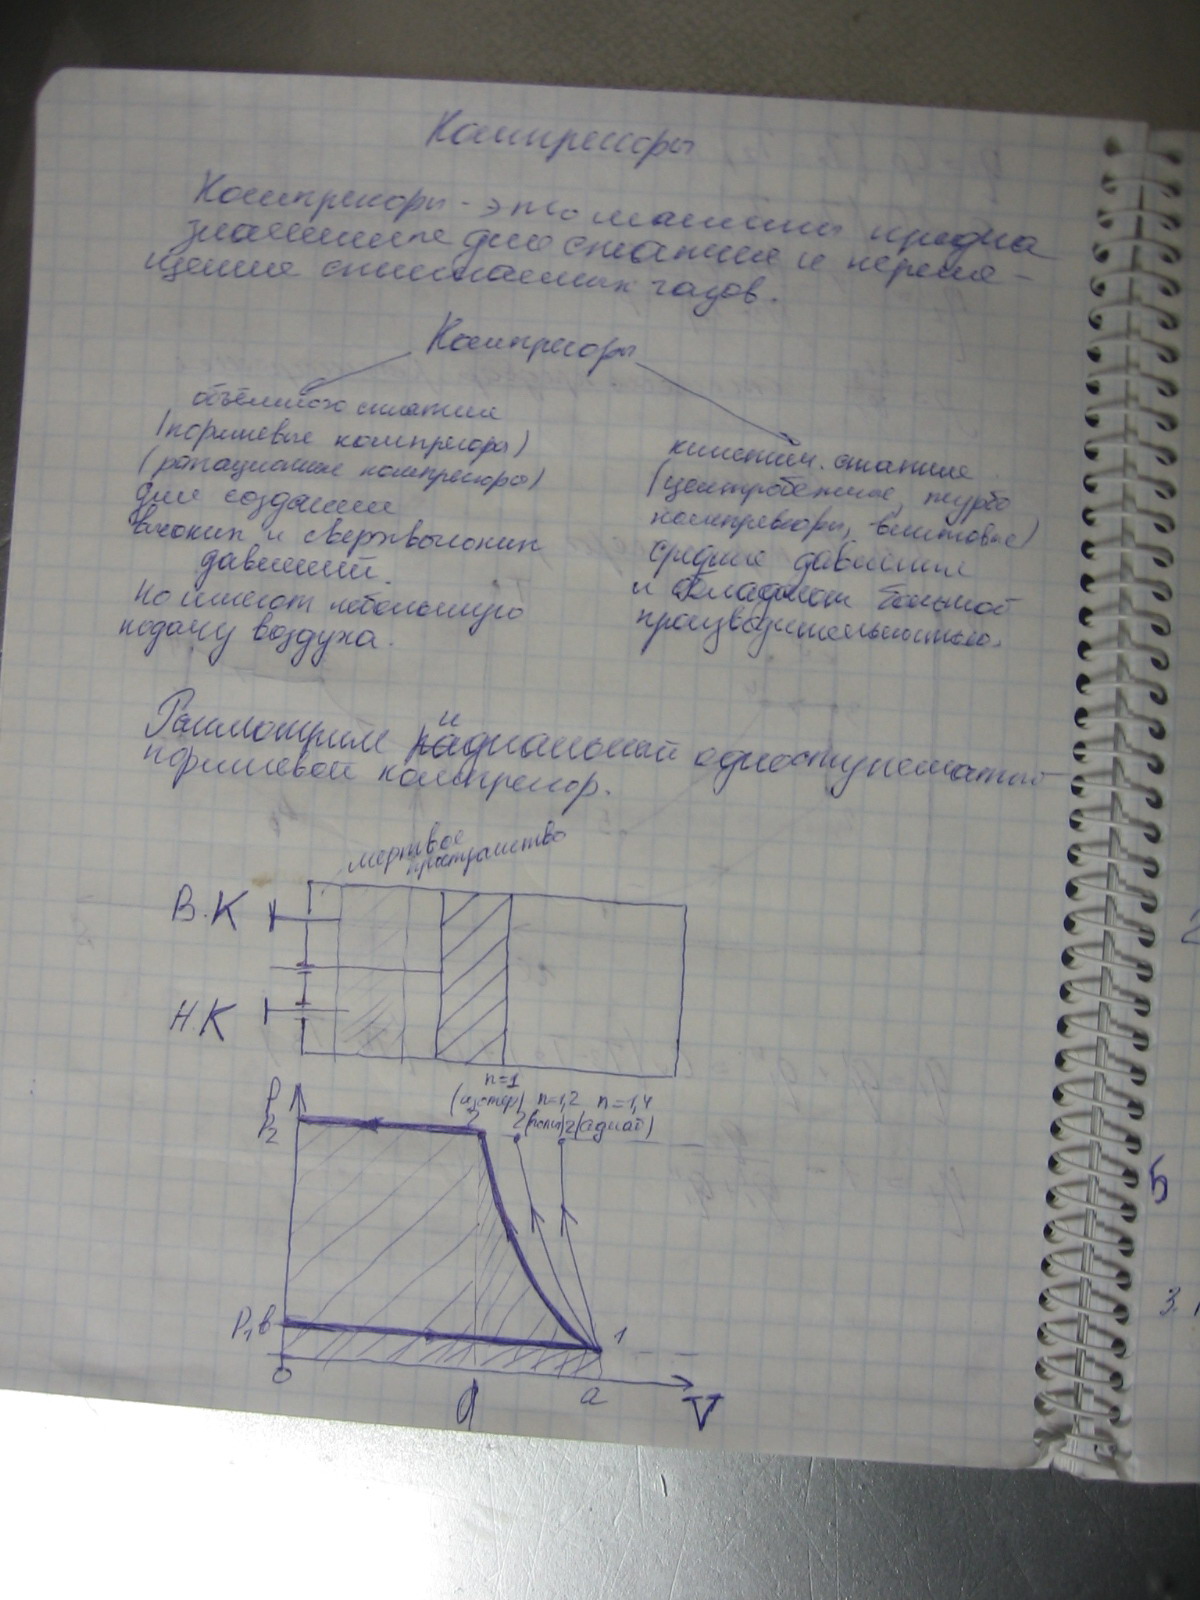 Компрессоры
Компресоры - это машины предна
значенные для сжатия и переме-
щения сжимаемых газов.
Компресоры
объёмного сжатия
(поршневые компресоры)
(ротационные компресоры)
для создания
высоких и сверхвысоких
давлений.
Но имеют небольшую
подачу воздуха.
сжатие
(центробежные, турбо
компресоры, винтовые)
средние давления
и обладают большой
производительностью.
Рассмотрим идиальный одноступенчатый
поршневой компресор.
мертвое
пространство
В.К
Н.К
n=1
(изотер) n=1,2 n=1,4
P
P2
2 2(поли) 2(адиаб)
P1 в
1
0
d
a
V
5
3.